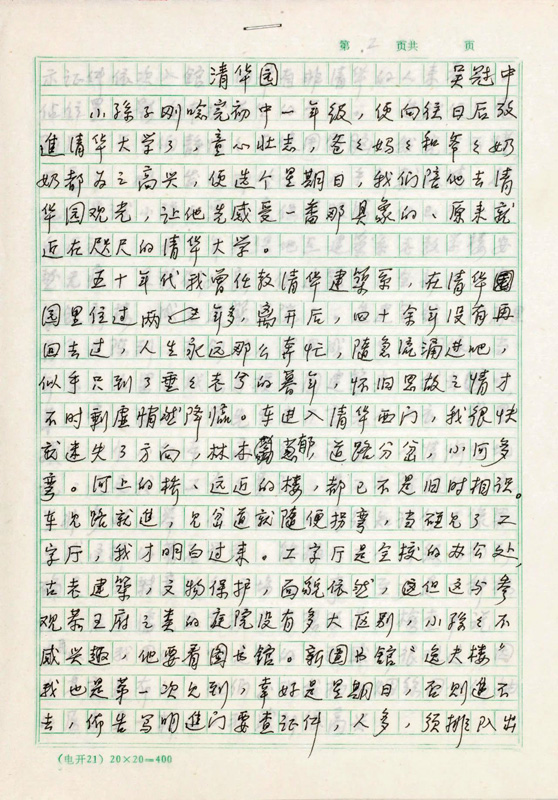 第 2 页共 页
清华园 吴冠中
小孙子刚唸完初中一年级，便向往日后考
進清华大学了，童心壮志，爸々妈々和爷々奶
奶都为之高兴，便选个星期日，我们陪他去清
华园观光，让他先感受一番那具象的、原来就
近在咫尺的清华大学。
五十年代我曾任教清华建築系，在清华
园里住过两三年多，离开后，四十余年没有再
回去过，人生永远那么奔忙，随急流涌进吧，
似乎只到了垂々老兮的暮年，怀旧思故之情才
不时剩虚悄然降临。车进入清华西门，我很快
就迷失了方向，林木葱郁，道路分岔，小河多
弯。河上的桥、远近的楼，都已不是旧时相识。
车见路就進，见岔道就随便拐弯，当碰见了工
字厅，我才明白过来。工字厅是全校的办公处，
古老建築，文物保护，面貌依然，但这与参
观恭王府之类的庭院没有多大区别，小孙々不
感兴趣，他要看图书馆。新图书馆“逸夫楼”
我也是第一次见到，幸好是星期日，否则進不
去，佈告写明進门要查证件，人多，须排队出
（电开21）20×20=400